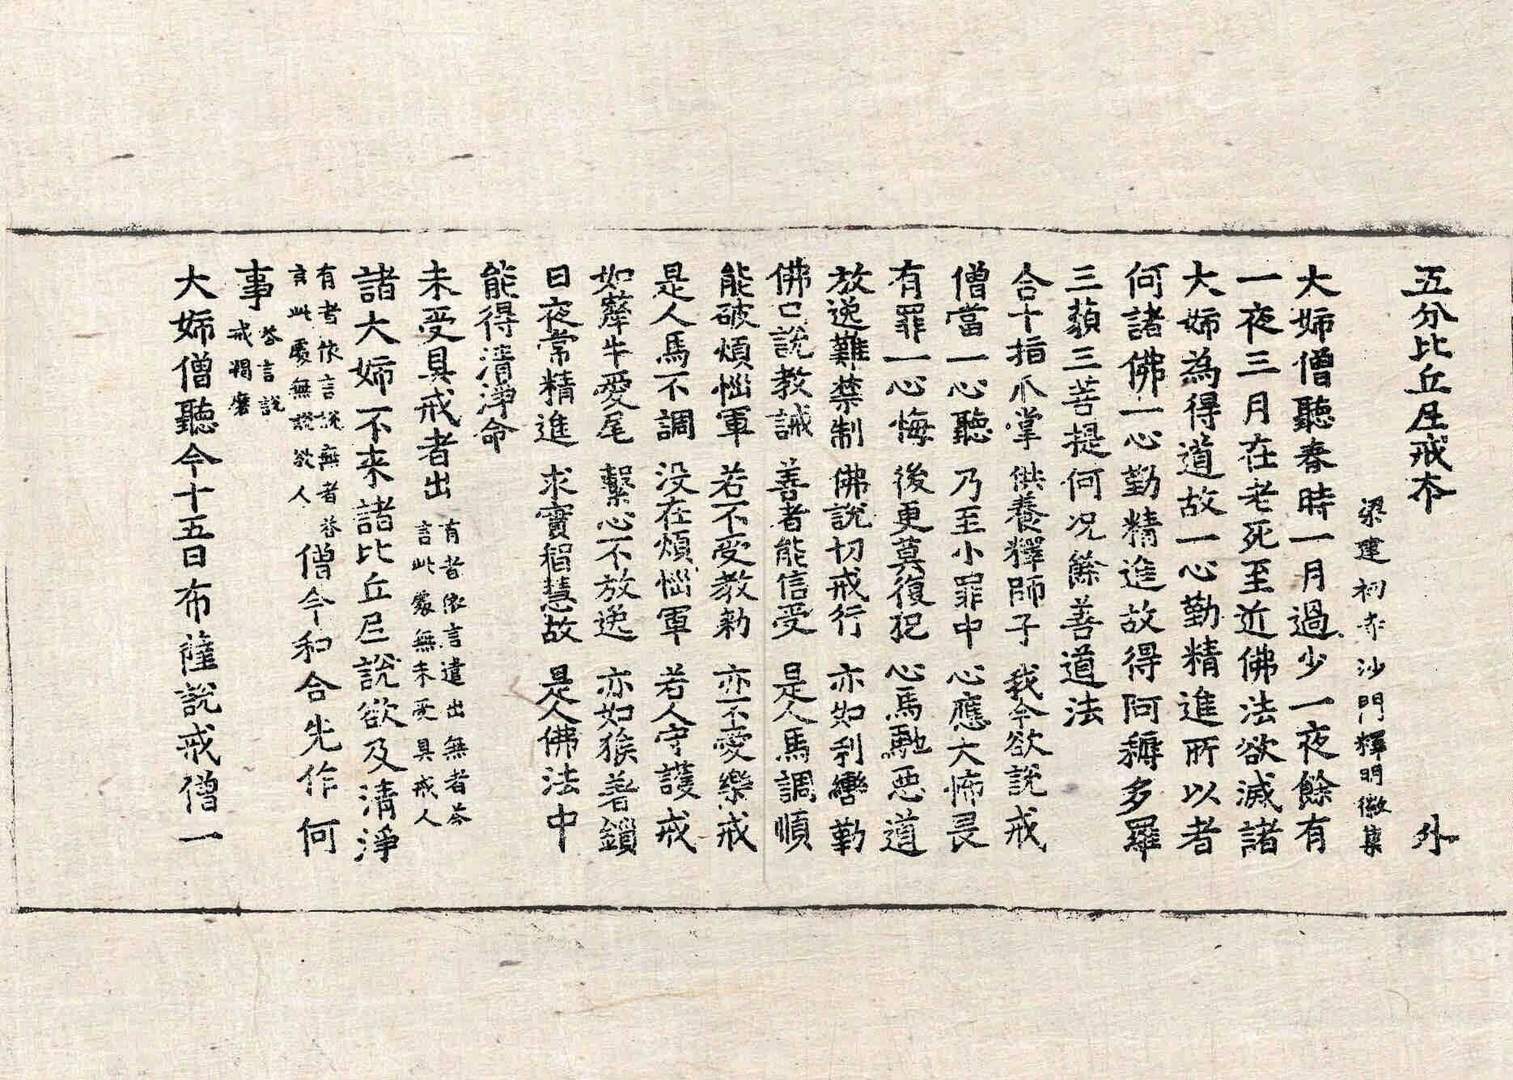 五分比丘尼戒本　外
梁建初寺沙門釋明徽集
大姉僧聽春時一月過少一夜餘有
一夜三月在老死至近佛法欲滅諸
大姉為得道故一心勤精進所以者
何諸佛一心勤精進故得阿耨多羅
三藐三菩提何况餘善道法
合十指爪掌　供養釋師子　我今欲說戒
僧當一心聽　乃至小罪中　心應大怖畏
有罪一心悔　後更莫復犯　心馬馳惡道
放逸難禁制　佛說切戒行　亦如利轡勒
佛口說教誡　善者能信受　是人馬調順
能破煩惱軍　若不受教勑　亦不愛樂戒
是人馬不調　没在煩惱軍　若人守護戒
如犛牛愛尾　繫心不放逸　亦如猴著鎖
日夜常精進　求實智慧故　是人佛法中
能得清淨命
未受具戒者出 有者依言遣出無者答
言此處無未受具戒人
諸大姉不来諸比丘尼說欲及清淨
有者依言說無者答
言此處無說欲人 僧今和合先作何
事 答言說
戒羯磨
大姉僧聽今十五日布薩說戒僧一